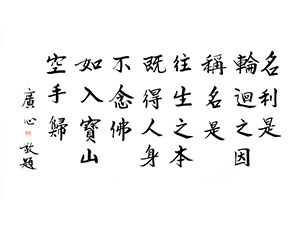 名利是
輪迴之因
稱名是
往生之本
既得人身
不念佛
如入寶山
空手歸
廣心敬題